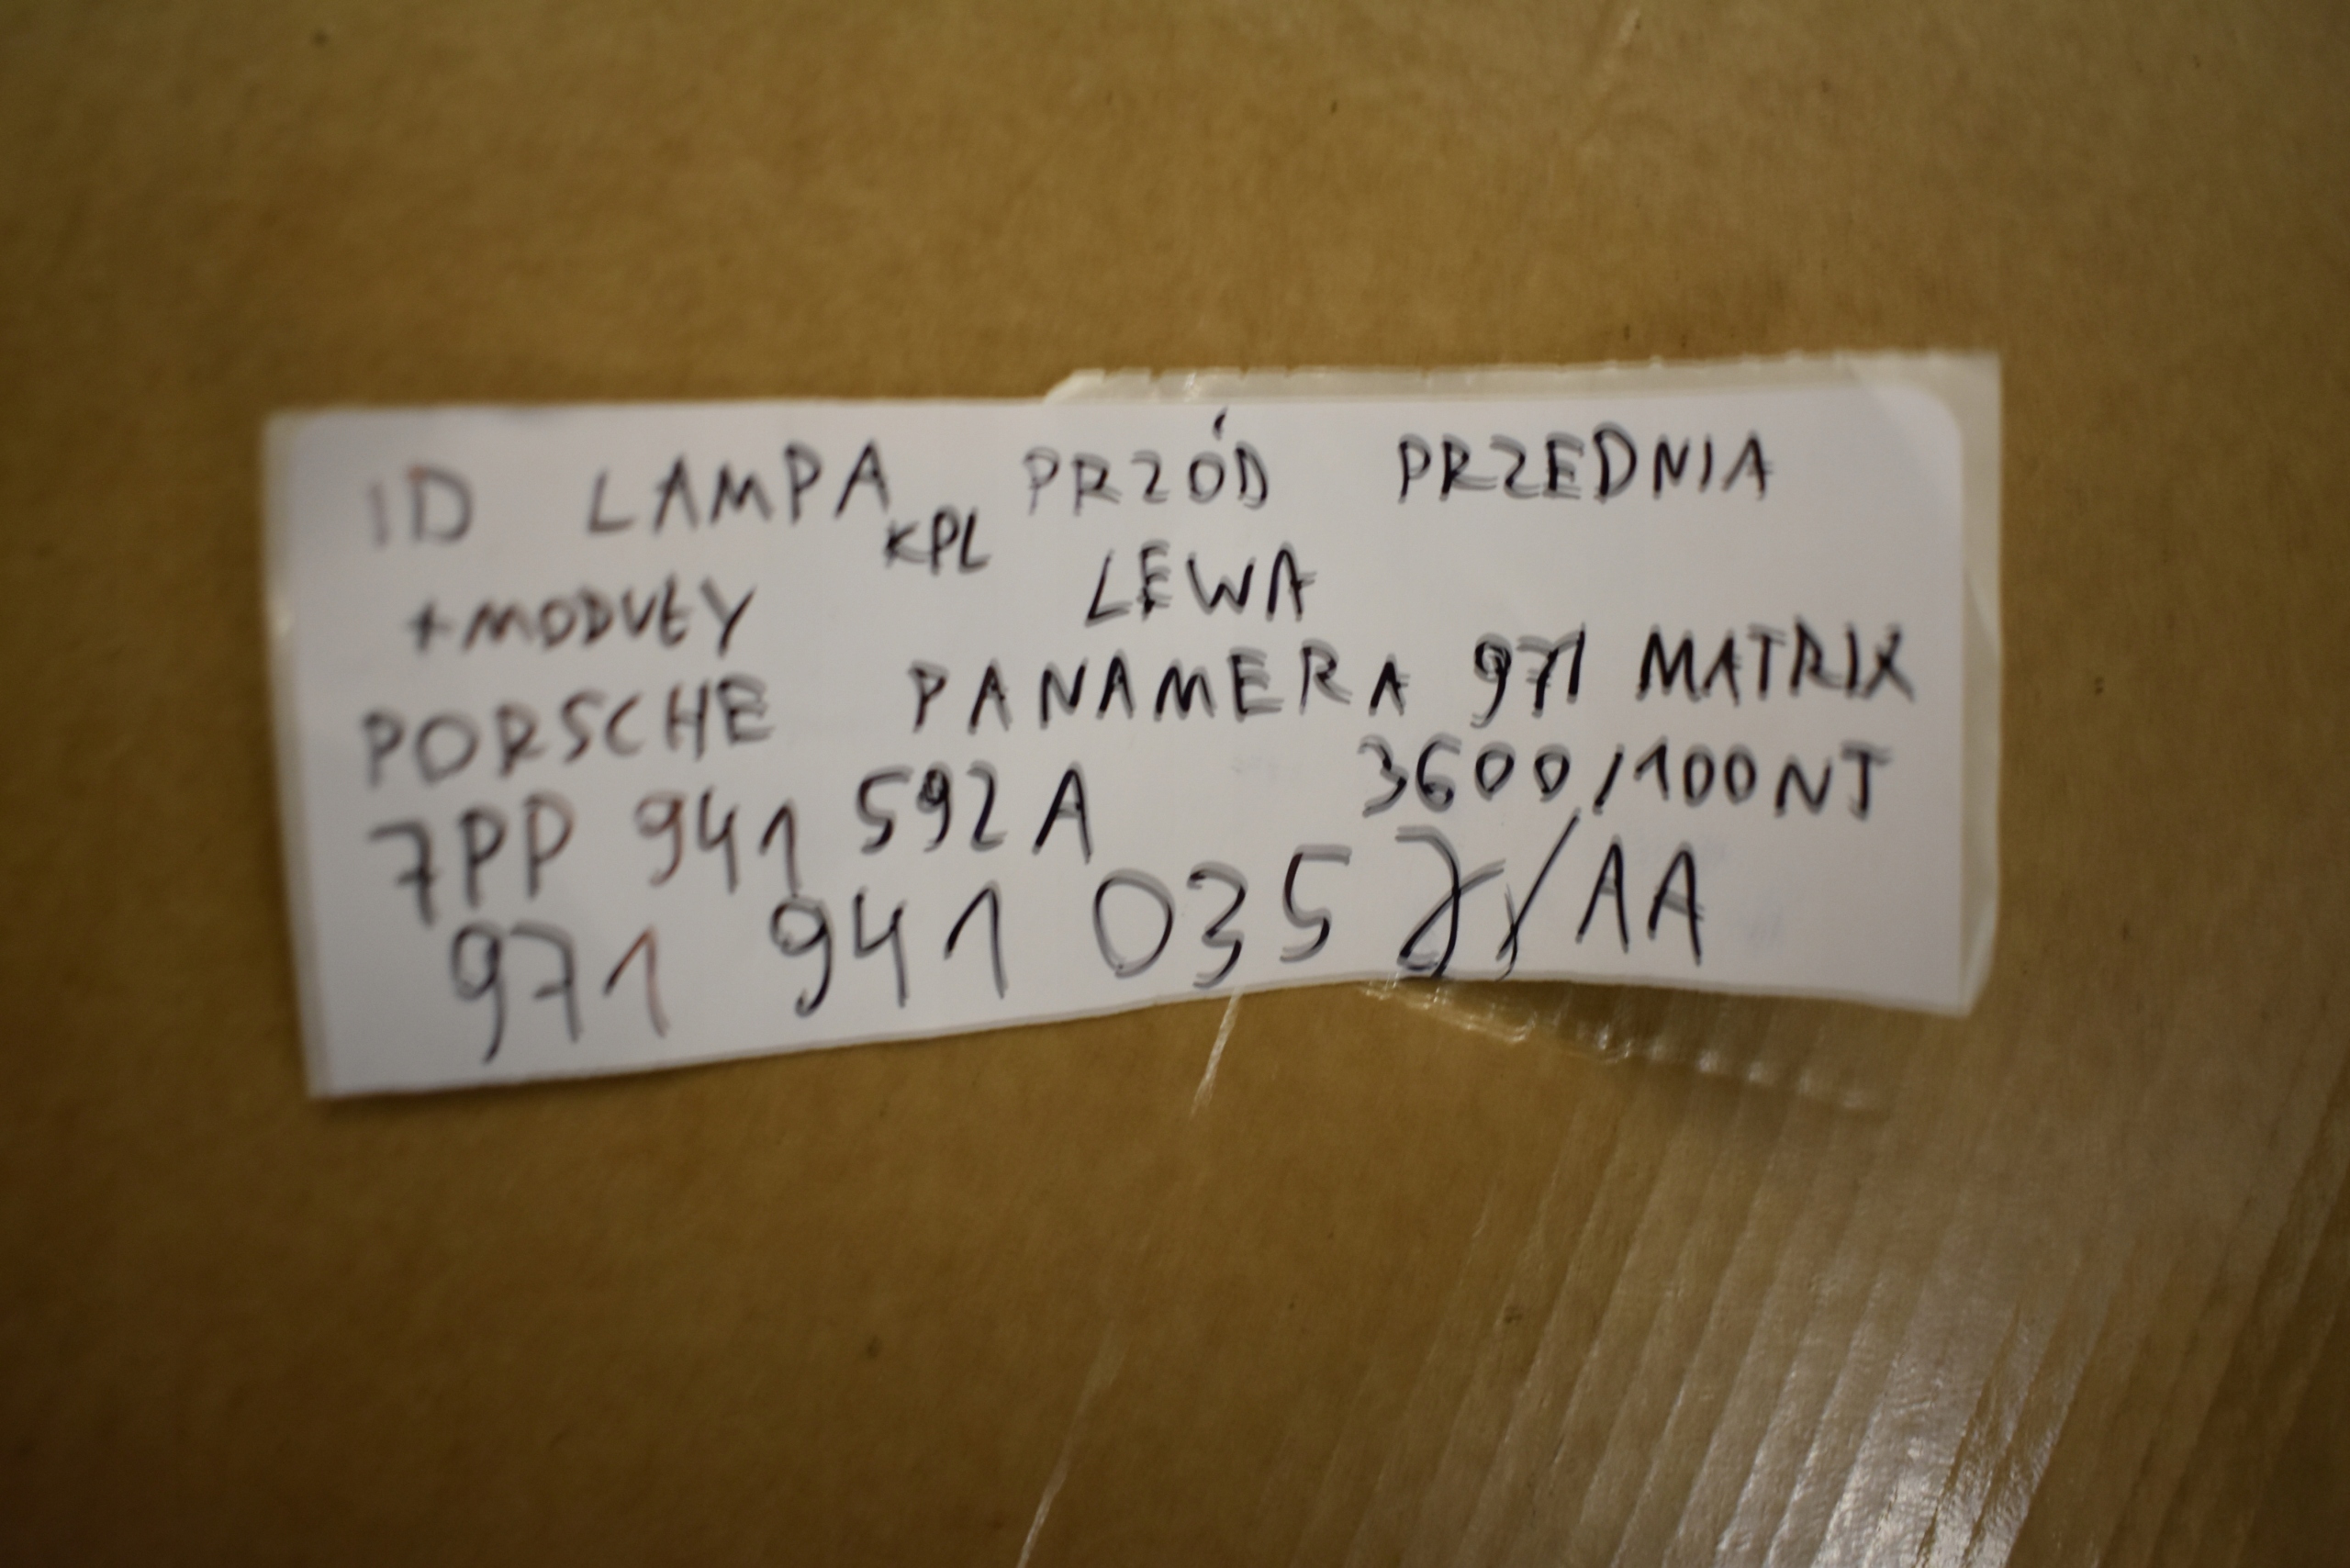 ID LAMPA KPL PRZÓD PRZEDNIA
+MODUŁY LEWA
PORSCHE PANAMERA 971 MATRIX
7PP 941 592 A 3600/100NT
971 941 035 /AA